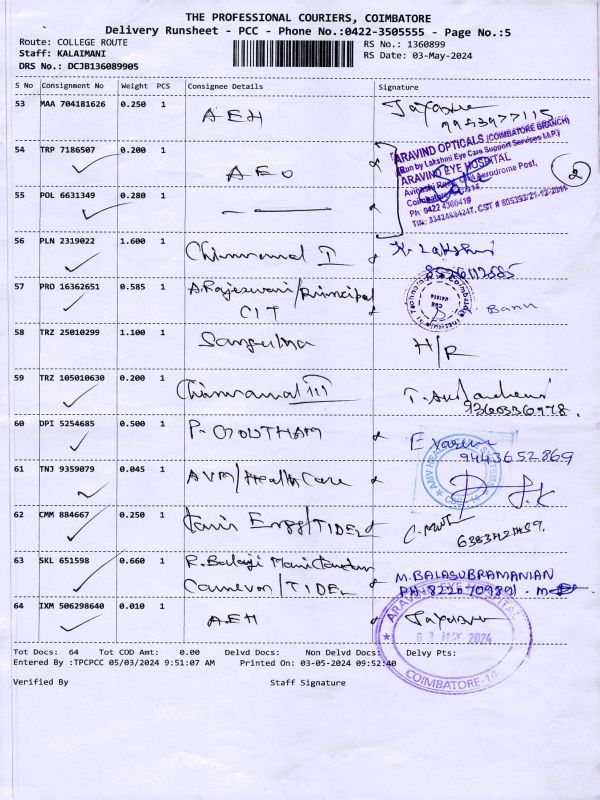 THE PROFESSIONAL COURIERS, COIMBATORE
Delivery Runsheet - PCC - Phone No.:0422-3505555 - Page No.:5
Route: COLLEGE ROUTE
RS No.: 1360899
Staff: KALAIMANI
RS Date: 03-May-2024
DRS No.: DCJB136089905
S No Consignment No Weight PCS Consignee Details Signature
53 MAA 704181626 0.250 1 AEH
54 TRP 7186507 0.200 1 AEO
ARAVIND OPTICALS (COIMBATORE BRANCH)
(Run by Lakshmi Eye Care Support Services LLP.)
ARAVIND EYE HOSPITAL
2
55 POL 6631349 0.280 1
56 PLN 2319022 1.600 1 Chinnamal I
57 PRO 16362651 0.585 1 A.Rajeswari/Principal
CIT
Banu
58 TRZ 25010299 1.100 1 H/R
59 TRZ 105010630 0.200 1 Chinnamal III
60 DPI 5254685 0.500 1 P. GOWTHAM
9443652869
61 TNJ 9359079 0.045 1 AVM/HealthCare
62 CMM 884667 0.250 1 Engg/TIDEL
63 SKL 651598 0.660 1 R.Balaji
Cameron/TIDEL
M.BALASUBRAMANIAN
64 IXM 506298640 0.010 1 AEH
ARAVIND EYE HOSPITAL
03 MAY 2024
COIMBATORE-14
Tot Docs: 64 Tot COD Amt: 0.00 Delvd Docs: Non Delvd Docs: Delvy Pts:
Entered By :TPCPCC 05/03/2024 9:51:07 AM Printed On: 03-05-2024 09:52:40
Verified By Staff Signature